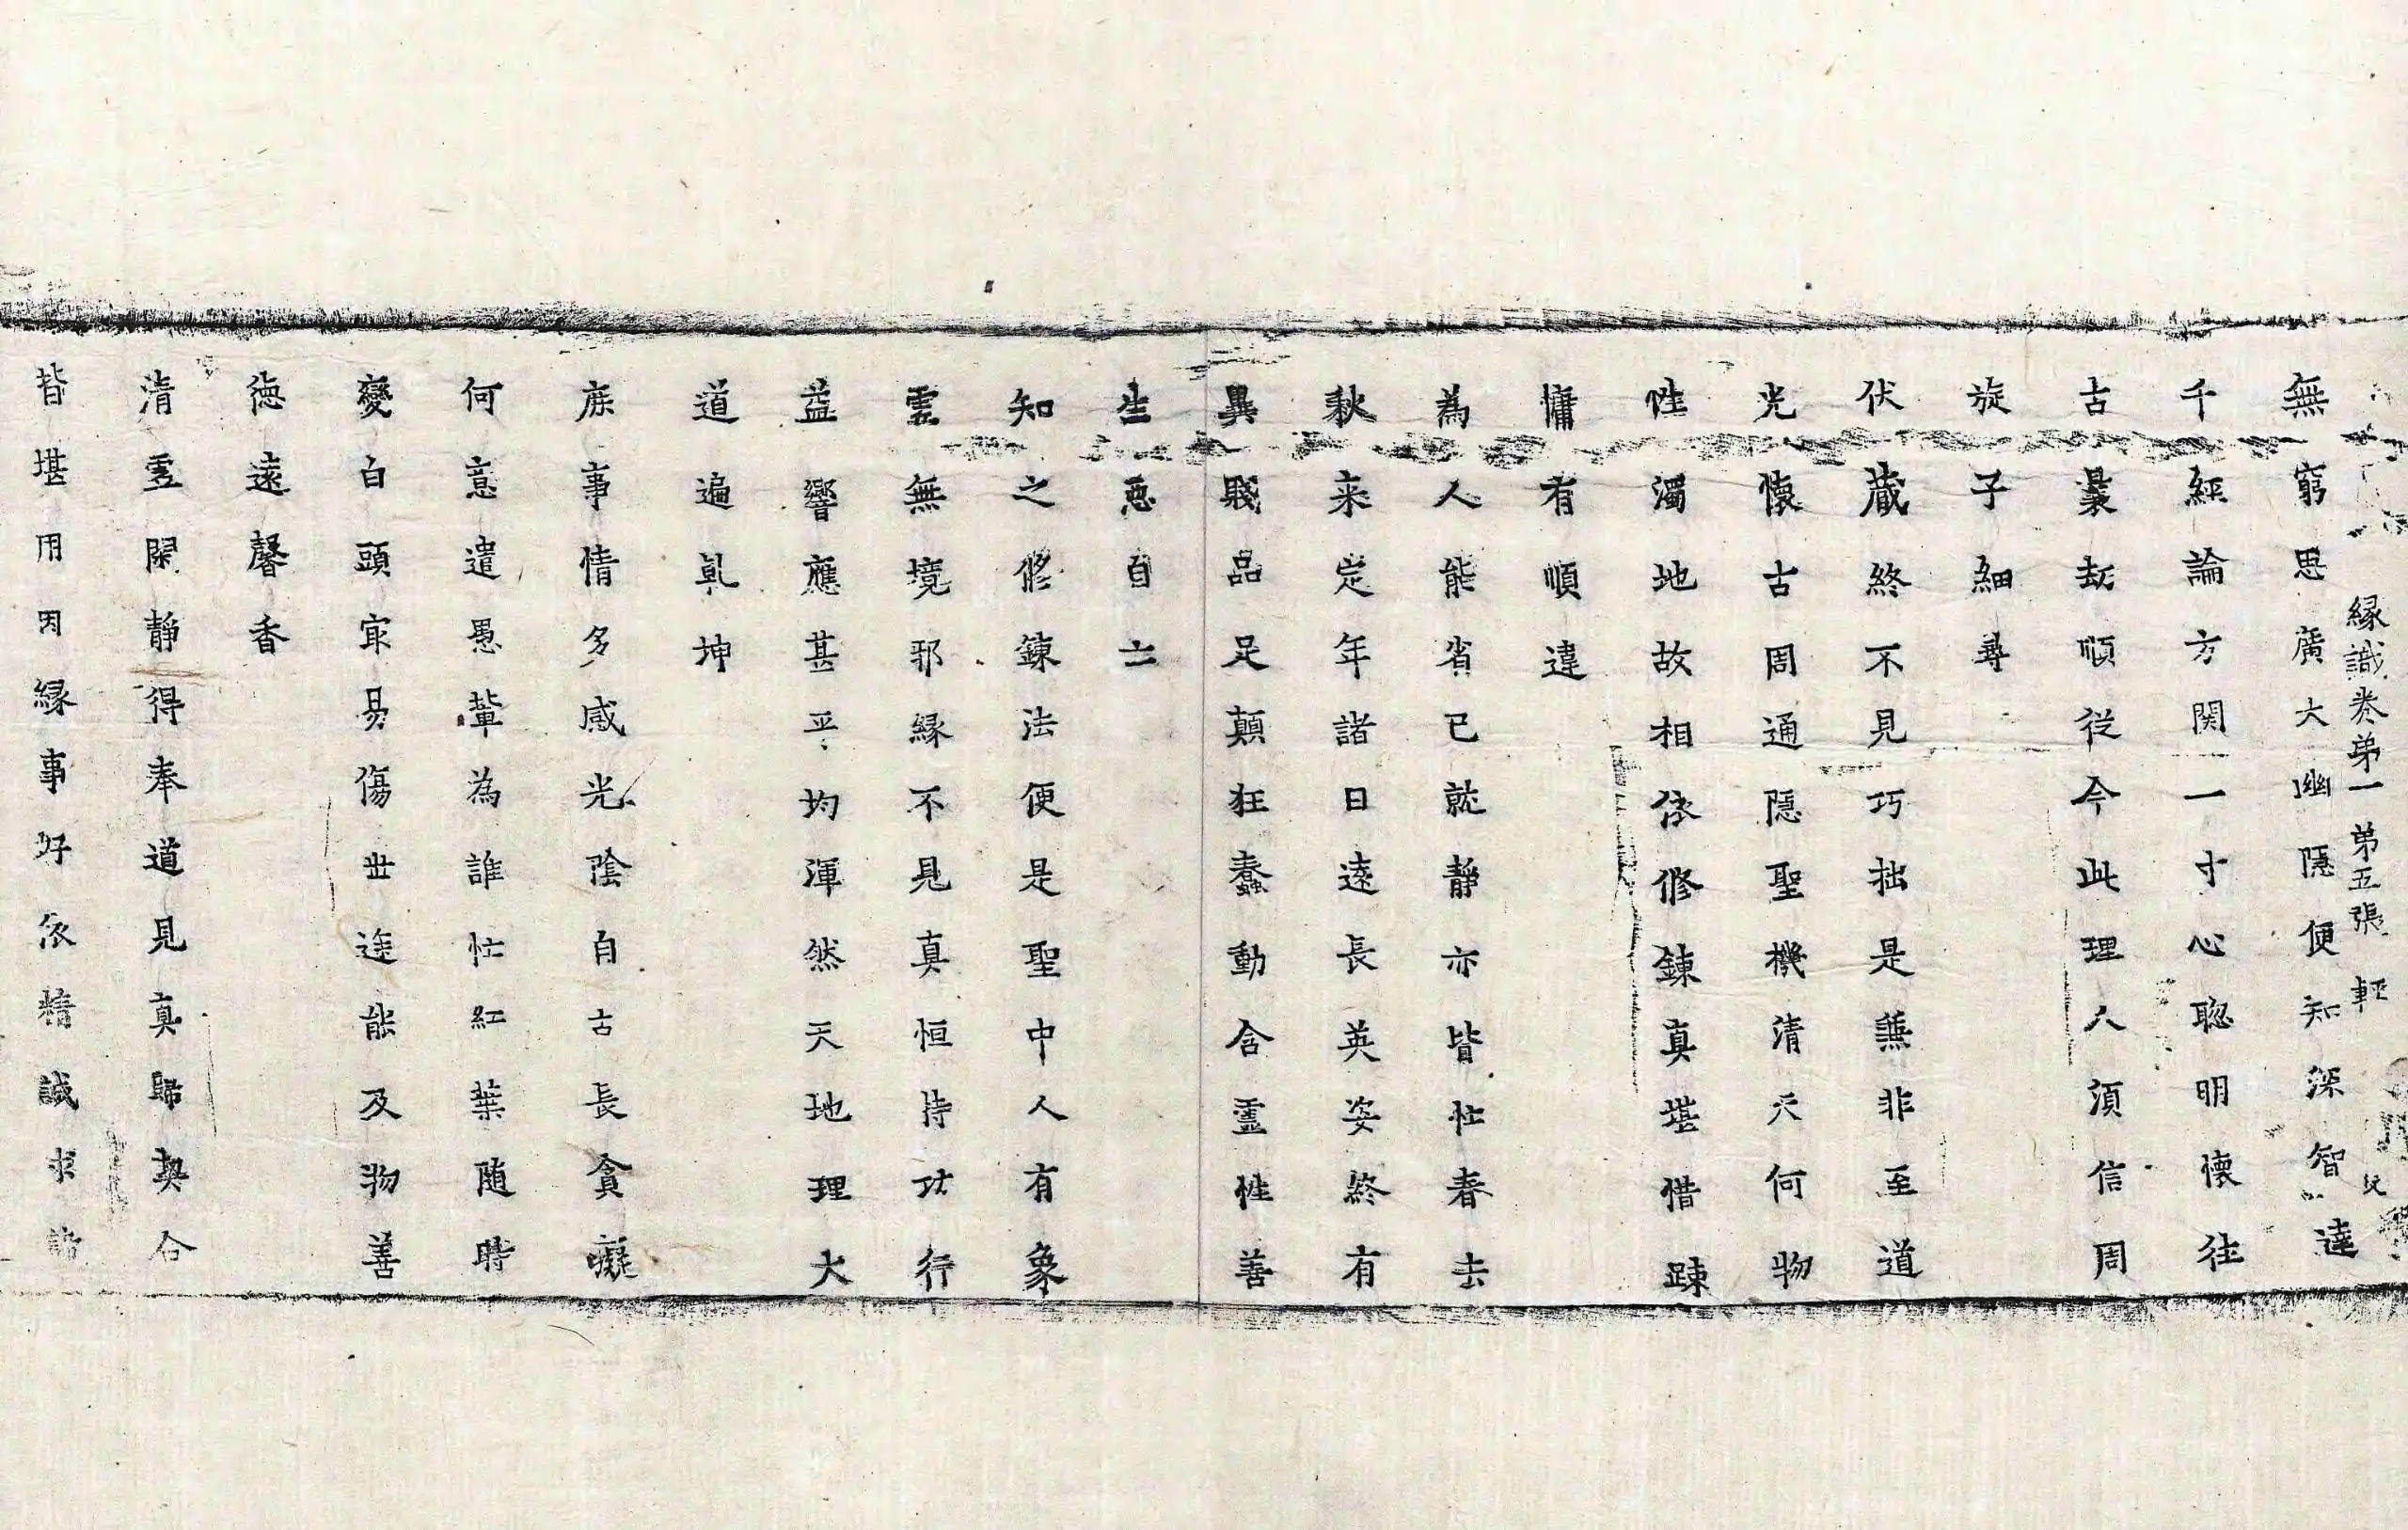 縁識卷苐一 苐五張 輕
無窮思廣大幽隱便知深智達
千經論方関一寸心聦明懷徃
古曩劫順從今此理人須信周
旋子細尋
伏蔵終不見巧拙是無非至道
光懷古周通隱聖機清天何物
性濁地故相依修鍊真堪惜踈
慵有順違
為人能省已就靜亦皆忙春去
秋来定年諸日遠長英姿終有
異賤品足顛狂蠢動含靈性善
生惡自亡
知之修鍊法便是聖中人有象
霊無境邪縁不見真恒持功行
益響應甚平均渾然天地理大
道遍乹坤
庶事情多感光陰自古長貪癡
何意遣愚輩為誰忙紅葉随時
變白頭㝡易傷世途能及物善
徳遠馨香
清虛閑靜得奉道見真歸契合
皆堪用因縁事好依精誠求